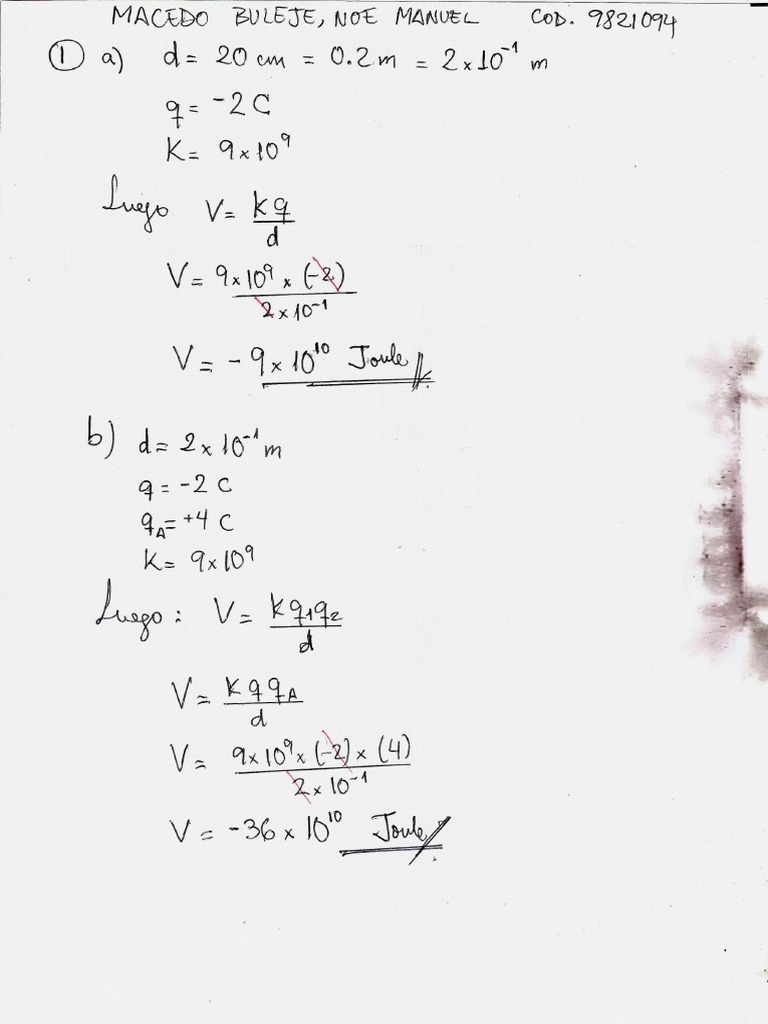 MACEDO BULEJE, NOE MANUEL COD. 9821094
① a) d = 20 cm = 0.2 m = 2 × 10⁻¹ m
q = -2 C
K = 9 × 10⁹
Luego V = kq / d
V = 9 × 10⁹ × (-2) / 2 × 10⁻¹
V = - 9 × 10¹⁰ Joule
b) d = 2 × 10⁻¹ m
q = -2 C
q_A = +4 C
K = 9 × 10⁹
Luego : V = K q₁ q₂ / d
V = K q q_A / d
V = 9 × 10⁹ × (-2) × (4) / 2 × 10⁻¹
V = -36 × 10¹⁰ Joule